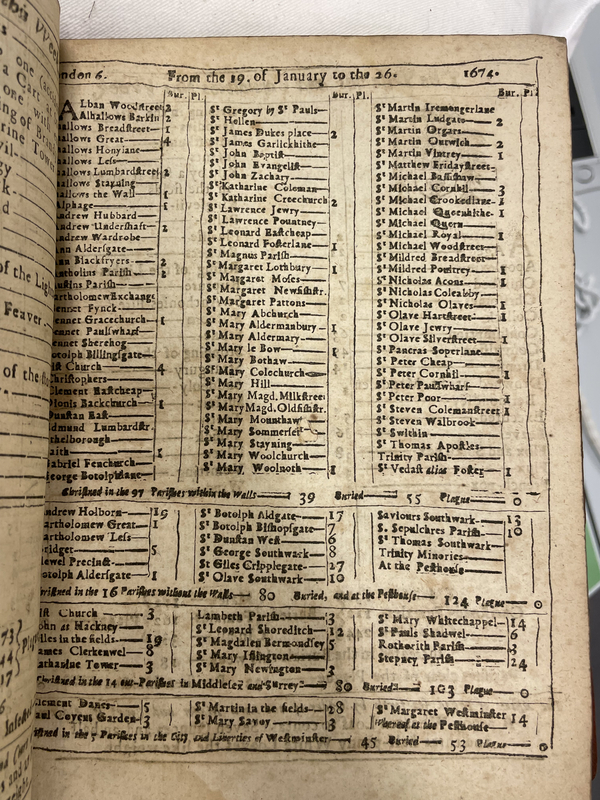 ndon 6. From the 19. of January to the 26. 1674.
Bur. Pl.
Alban Woodstreet 2
Alhallows Barkin 2
hallows Breadstreet 1
hallows Great 4
hallows Honylane
hallows Less
hallows Lumbardstreet 2
hallows Stayning
hallows the Wall 1
lphage 1
ndrew Hubbard
ndrew Undershaft 2
ndrew Wardrobe
nn Aldersgate
nn Blackfryers 2
ntholins Parish 2
ustins Parish
artholomew Exchange
ennet Fynck
ennet Gracechurch 1
ennet Paulswharf
ennet Sherehog
otolph Billingsgate
ist Church 4
hristophers
lement Eastcheap
ionis Backchurch 1
unstan East
dmund Lumbardstr.
thelborough
aith 1
abriel Fenchurch
eorge Botolphlane
Bur. Pl.
St Gregory by St Pauls
St Hellen
St James Dukes place 2
St James Garlickhithe
St John Baptist
St John Evangelist
St John Zachary
St Katharine Coleman
St Katharine Creechurch 2
St Lawrence Jewry
St Lawrence Pountney
St Leonard Eastcheap
St Leonard Fosterlane 1
St Magnus Parish
St Margaret Lothbury 1
St Margaret Moses
St Margaret Newfishstr.
St Margaret Pattons
St Mary Abchurch
St Mary Aldermanbury 1
St Mary Aldermary
St Mary le Bow 1
St Mary Bothaw
St Mary Colechurch
St Mary Hill
St Mary Magd. Milkstreet
St Mary Magd. Oldfishstr.
St Mary Mounthaw
St Mary Sommerset
St Mary Stayning
St Mary Woolchurch
St Mary Woolnoth
Bur. Pl.
St Martin Iremongerlane
St Martin Ludgate 2
St Martin Orgars
St Martin Outwich 2
St Martin Vintrey 1
St Matthew Fridaystreet
St Michael Bassishaw
St Michael Cornhil 3
St Michael Crookedlane 1
St Michael Queenhithe 1
St Michael Quern
St Michael Royal 1
St Michael Woodstreet
St Mildred Breadstreet
St Mildred Poultrey 1
St Nicholas Acons 1
St Nicholas Coleabby
St Nicholas Olaves 1
St Olave Hartstreet 1
St Olave Jewry
St Olave Silverstreet 1
St Pancras Soperlane
St Peter Cheap
St Peter Cornhil 1
St Peter Paulswharf
St Peter Poor 1
St Steven Colemanstreet 1
St Steven Walbrook
St Swithin
St Thomas Apostles
Trinity Parish
St Vedast alias Foster 1
Christned in the 97 Parishes within the Walls 39 Buried 55 Plague 0
ndrew Holborn 19
artholomew Great 1
artholomew Less
ridget 5
dewel Precinct
otolph Aldersgate 1
St Botolph Aldgate 17
St Botolph Bishopsgate 7
St Dunstan West 6
St George Southwark 8
St Giles Cripplegate 27
St Olave Southwark 10
Saviours Southwark 13
S. Sepulchres Parish 10
St Thomas Southwark
Trinity Minories
At the Pesthouse
hristned in the 16 Parishes without the Walls 80 Buried, and at the Pesthouse 124 Plague 0
ist Church 3
ohn at Hackney
iles in the fields 19
ames Clerkenwel 8
atharine Tower 3
Lambeth Parish 3
St Leonard Shoreditch 12
St Magdalen Bermondsey 5
St Mary Islington
St Mary Newington 3
St Mary Whitechappel 14
St Pauls Shadwel 6
Rotherith Parish 3
Stepney Parish 24
Christned in the 14 out-Parishes in Middlesex and Surrey 80 Buried 103 Plague 0
lement Danes 5
aul Covent Garden 3
St Martin in the fields 28
St Mary Savoy 3
St Margaret Westminster 14
Whereof at the Pesthouse
istned in the 5 Parishes in the City and Liberties of Westminster 45 Buried 53 Plague 0
Feaver